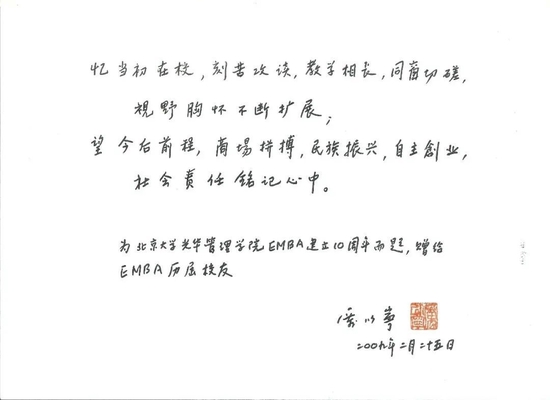 忆当初在校，刻苦攻读，教学相长，同窗切磋，
视野胸怀不断扩展；
望今后前程，商場拼搏，民族振兴，自主創业，
社会责任铭记心中。
为北京大学光华管理学院EMBA建立10周年而题，赠给
EMBA历届校友
厉以寧
二00九年二月二十五日